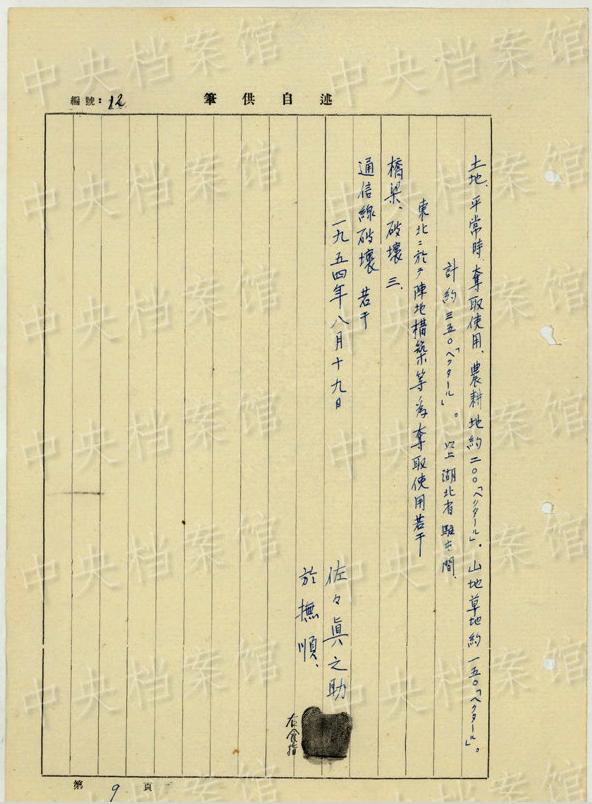 編號: 12
述自供筆
土地、平常時奪取使用、農耕地約二〇〇「ヘクタール」。山地草地約一五〇「ヘクタール」。
計約三五〇「ヘクタール」。以上湖北省駐屯間、
東北ニ於ケ陣地構築等ノ為奪取使用若干
橋梁、破壊三、
通信線破壊 若干
一九五四年八月十九日
佐々眞之助
於撫順、
右食指
第 9 頁
中央档案馆